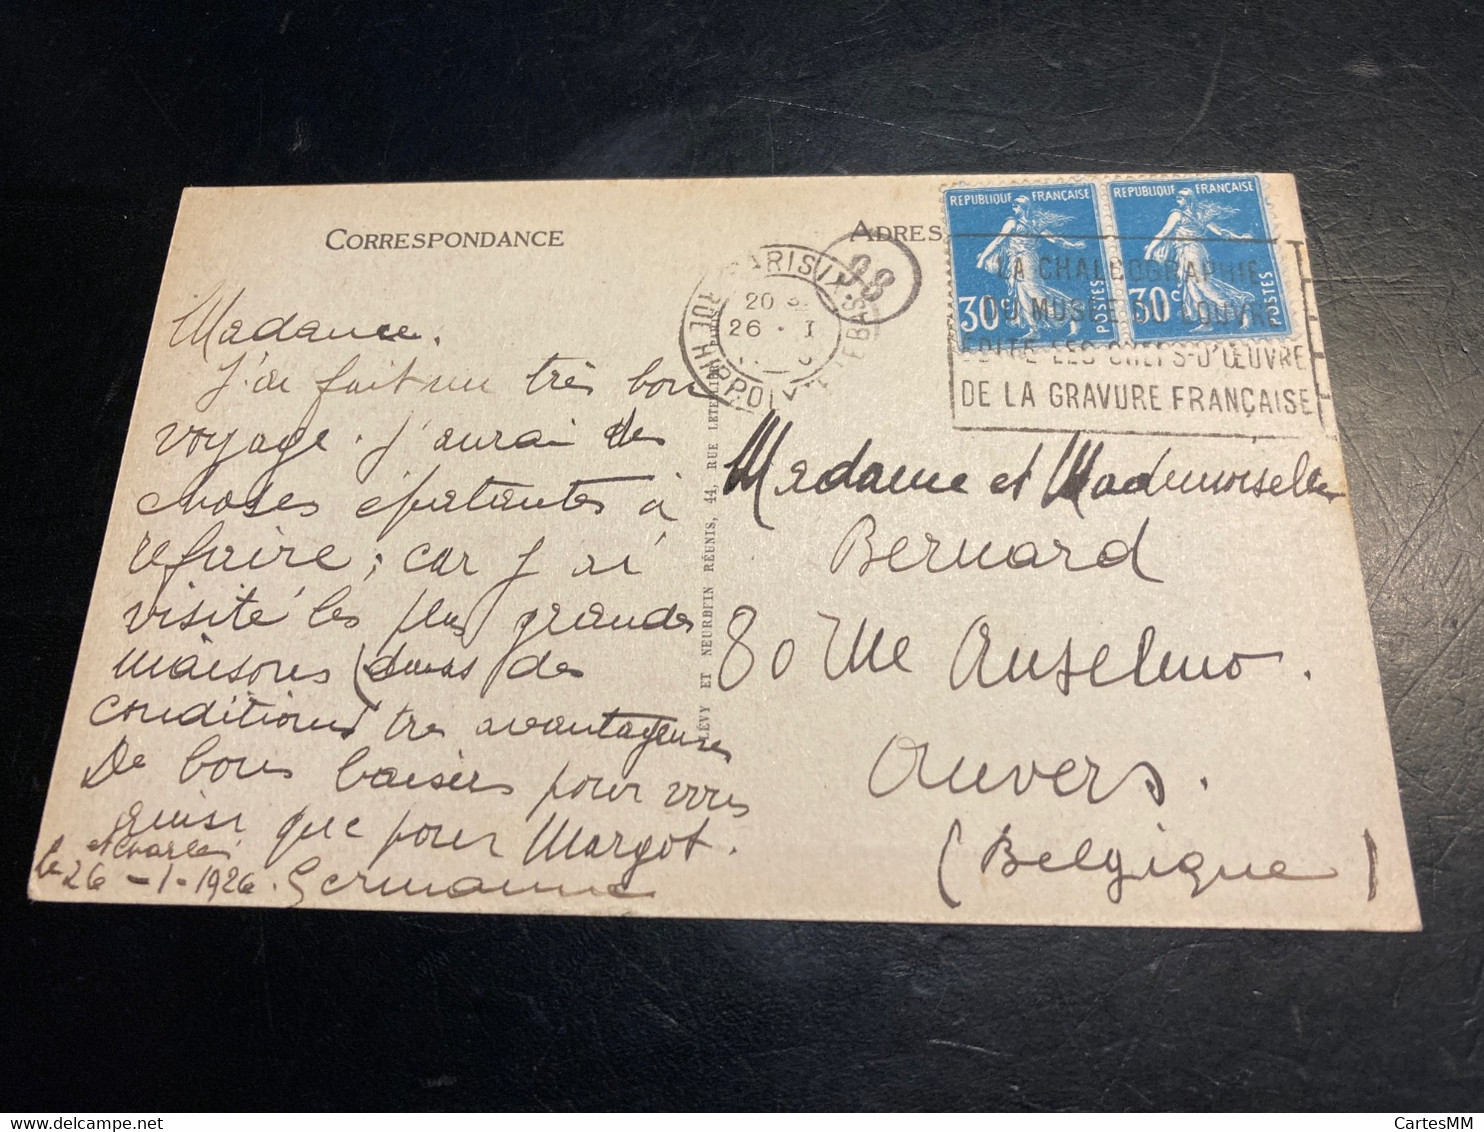 CORRESPONDANCE
Madame.
J'ai fait un très bon
voyage. J'aurai des
choses épatantes à
refaire; car j'ai
visité les plus grandes
maisons (dans des
conditions très avantageuses
De bons baisers pour vous
ainsi que pour Margot.
et Charles
Le 26-1-1926. Germanne
LÉVY ET NEURDEIN RÉUNIS, 44, RUE LETELLIER, PARIS
ADRES
98
PARIS IX
20
26 · I
RUE HIPPOLYTE LEBAS
REPUBLIQUE FRANÇAISE
30c
POSTES
REPUBLIQUE FRANÇAISE
30c
POSTES
LA CHALCOGRAPHIE
DU MUSÉE DU LOUVRE
EDITE LES CHEFS-D'ŒUVRE
DE LA GRAVURE FRANÇAISE
Madame et Mademoiselle
Bernard
80 rue Anselmo.
Anvers.
(Belgique)
CartesMM